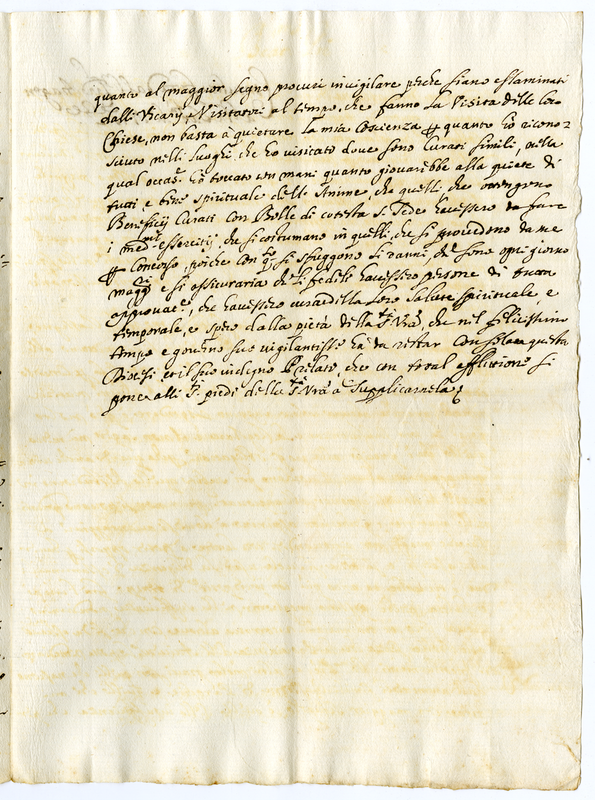 quanto al maggior segno procuri invigilare perche siano essaminati
dalli Vicarij, e Visitatori al tempo, che fanno la Visita delle loro
Chiese, non basta à quietare la mia Coscienza quanto hò ricono=
sciuto nelli luoghi, che hò visitato dove sono Curati simili, nella
qual occas.e hò toccato con mani quanto giovarebbe alla quiete di
tutti, e bene spirituale dell' Anime, che quelli, che ottengono
Beneficij Curati con Bolle di cotesta S. Sede havessero da fare
i med.mi essercitij, che si costumano in quelli, che si provedono da me
Concorso, poiche con q.to si sfuggono li danni, che sono ogni giorno
magg.ri e si assicuraria che li fedeli havessero persone di
approvat.e, che havessero cura della loro salute spirituale, e
temporale, e spero dalla pietà della S.tà V.rà, che nel felicissimo
tempo e governo suo vigilantissimo hà da restar consolata questa
Diocesi, et il suo indegno Prelato, che con total afflittione si
pone alli S.i piedi della S.tà V.rà à supplicarnela